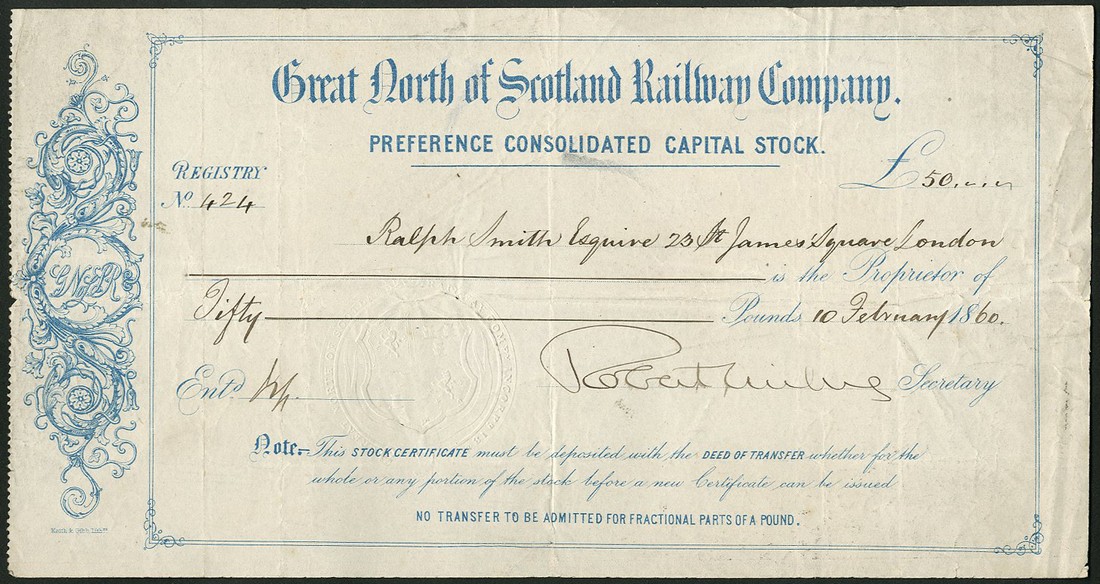 Great North of Scotland Railway Company.
PREFERENCE CONSOLIDATED CAPITAL STOCK.
REGISTRY
No. 424
£50
Ralph Smith Esquire 23 St James' Square London
is the Proprietor of
Fifty Pounds 10 February 1860.
GNofSR
Entd.
Robert Milne Secretary
Note.—This STOCK CERTIFICATE must be deposited with the DEED OF TRANSFER whether for the
whole or any portion of the stock before a new Certificate can be issued
NO TRANSFER TO BE ADMITTED FOR FRACTIONAL PARTS OF A POUND.